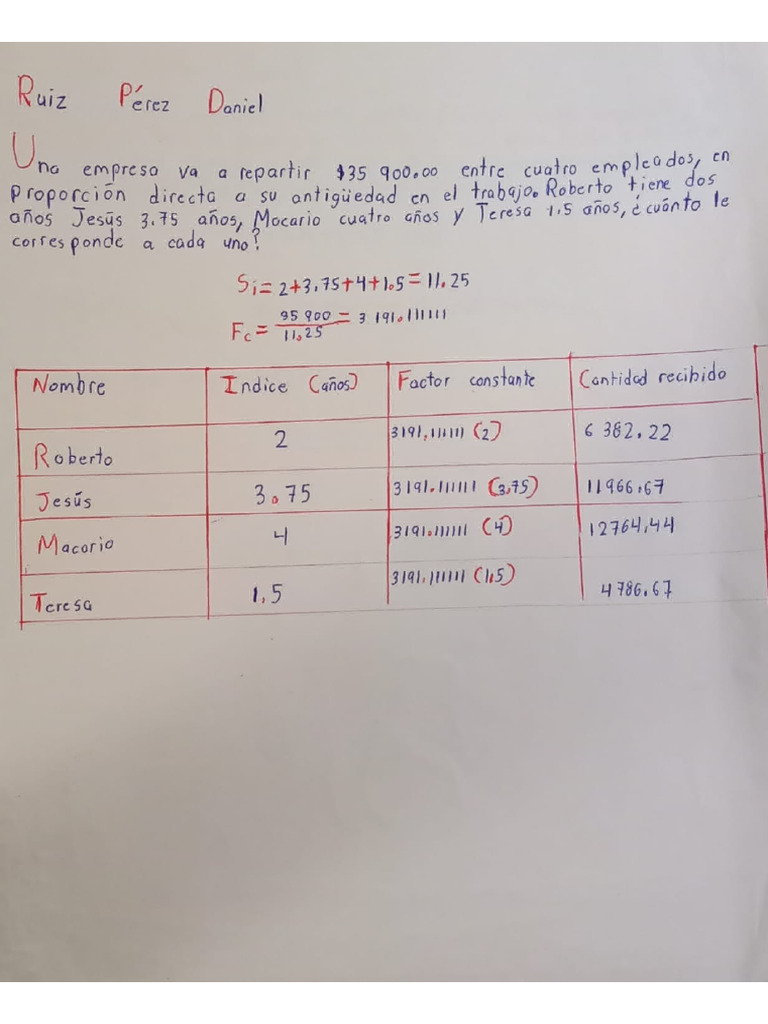 Ruiz Pérez Daniel
Una empresa va a repartir $35 900.00 entre cuatro empleados, en
proporción directa a su antigüedad en el trabajo. Roberto tiene dos
años Jesús 3.75 años, Macario cuatro años y Teresa 1.5 años, ¿cuánto le
corresponde a cada uno?
Si = 2+3.75+4+1.5 = 11.25
Fc = 35 900 / 11.25 = 3 191.111111
Nombre Indice (años) Factor constante Cantidad recibido
Roberto 2 3191.111111 (2) 6 382.22
Jesús 3.75 3191.111111 (3.75) 11966.67
Macario 4 3191.111111 (4) 12764.44
Teresa 1.5 3191.111111 (1.5) 4786.67